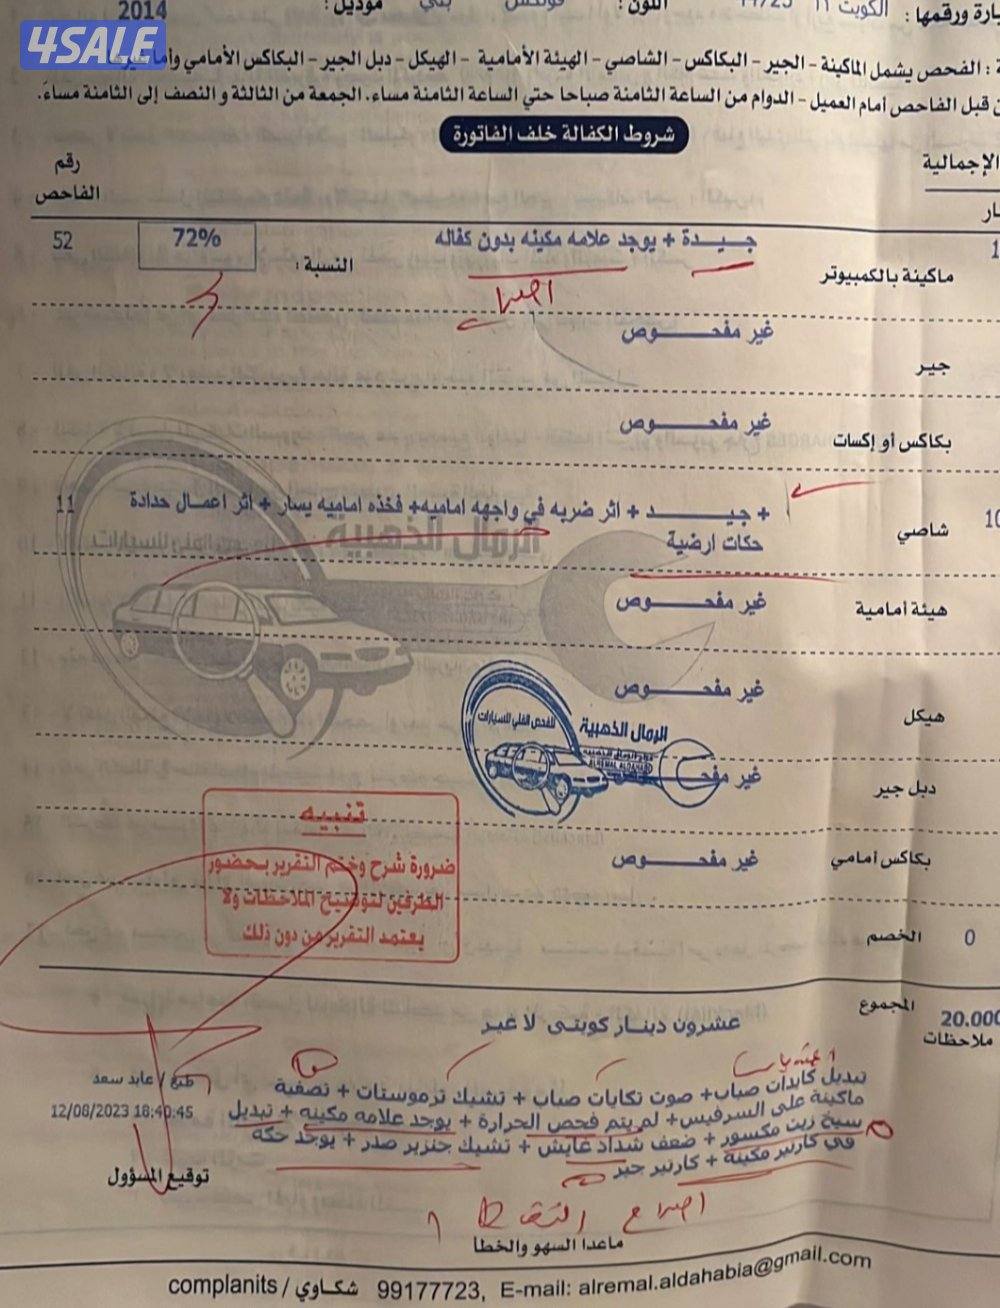 2014
موديل :
بني
اللون :
الكويت 11
يارة ورقمها :
4SALE
: الفحص يشمل الماكينة - الجير - البكاكس - الشاصي - الهيئة الأمامية - الهيكل - دبل الجير - البكاكس الأمامي وأما غيرها
ن قبل الفاحص أمام العميل - الدوام من الساعة الثامنة صباحا حتي الساعة الثامنة مساء. الجمعة من الثالثة و النصف إلى الثامنة مساءً.
شروط الكفالة خلف الفاتورة
الإجمالية
رقم الفاحص
ماكينة بالكمبيوتر
جيدة + يوجد علامه مكينه بدون كفاله
النسبة :
72%
52
اصلاح
جير
غير مفحوص
بكاكس أو إكسات
غير مفحوص
شاصي
+ جيد + اثر ضربه في واجهه اماميه+ فخذه اماميه يسار + اثر اعمال حدادة
11
حكات ارضية
الرمال الذهبية
هيئة أمامية
غير مفحوص
هيكل
غير مفحوص
الرمال الذهبية
للفحص الفني للسيارات
ALREMAL ALDAHABI
دبل جير
غير مفحـ
بكاكس أمامي
غير مفحوص
تنبيه
ضرورة شرح وختم التقرير بحضور
الطرفين لتوضيح الملاحظات ولا
يعتمد التقرير من دون ذلك
0
الخصم
20.000
المجموع
عشرون دينار كويتي لا غير
ملاحظات
تبديل كابدات صباب+ صوت تكايات صباب + تشيك ترموستات + تصفية
ماكينة على السرفيس+ لم يتم فحص الحرارة + يوجد علامه مكينه + تبديل
سيخ زيت مكسور + ضعف شداد غايش + تشيك جنزير صدر + يوجد حكه
في كارتير مكينة + كارتير جير
طبع / عابد سعد
12/08/2023 18:40:45
توقيع المسؤول
اصلاح النقاط
ماعدا السهو والخطا
complanits / شكاوي 99177723, E-mail: alremal.aldahabia@gmail.com